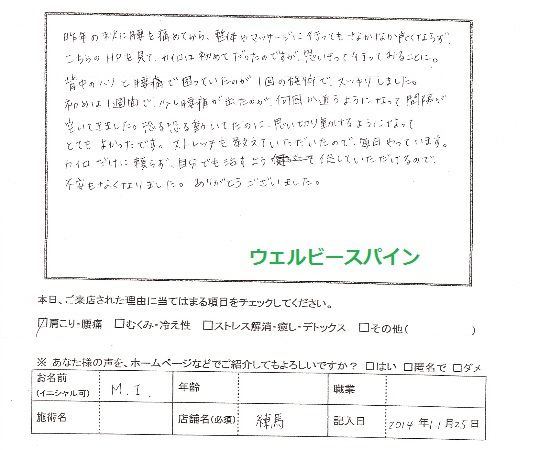 昨年の秋に腰を痛めてから、整体やマッサージに行ってもなかなか良くならず、
こちらのHPを見て、カイロは初めてだったのですが、思いきって行っておることに。
背中のハリと腰痛で困っていたのが1回の施術で、スッキリしました。
初めは1週間で、少し腰痛が出たのが、何回か通うようになって間隔が
空いてきました。恐る恐る動いてたのに、思い切り動けるようになって
とてもよかったです。ストレッチも教えていただいたので、毎日やっています。
カイロだけに頼らず、自分でも治すよう 促していただけるので、
不安もなくなりました。ありがとうございました。
ウェルビースパイン
本日、ご来店された理由に当てはまる項目をチェックしてください。
☑肩こり・腰痛 □むくみ・冷え性 □ストレス解消・癒し・デトックス □その他( )
※ あなた様の声を、ホームページなどでご紹介してもよろしいですか？ □はい □匿名で □ダメ
お名前 (イニシャル可) M.I. 年齢 職業
施術名 店舗名(必須) 練馬 記入日 2014年11月25日